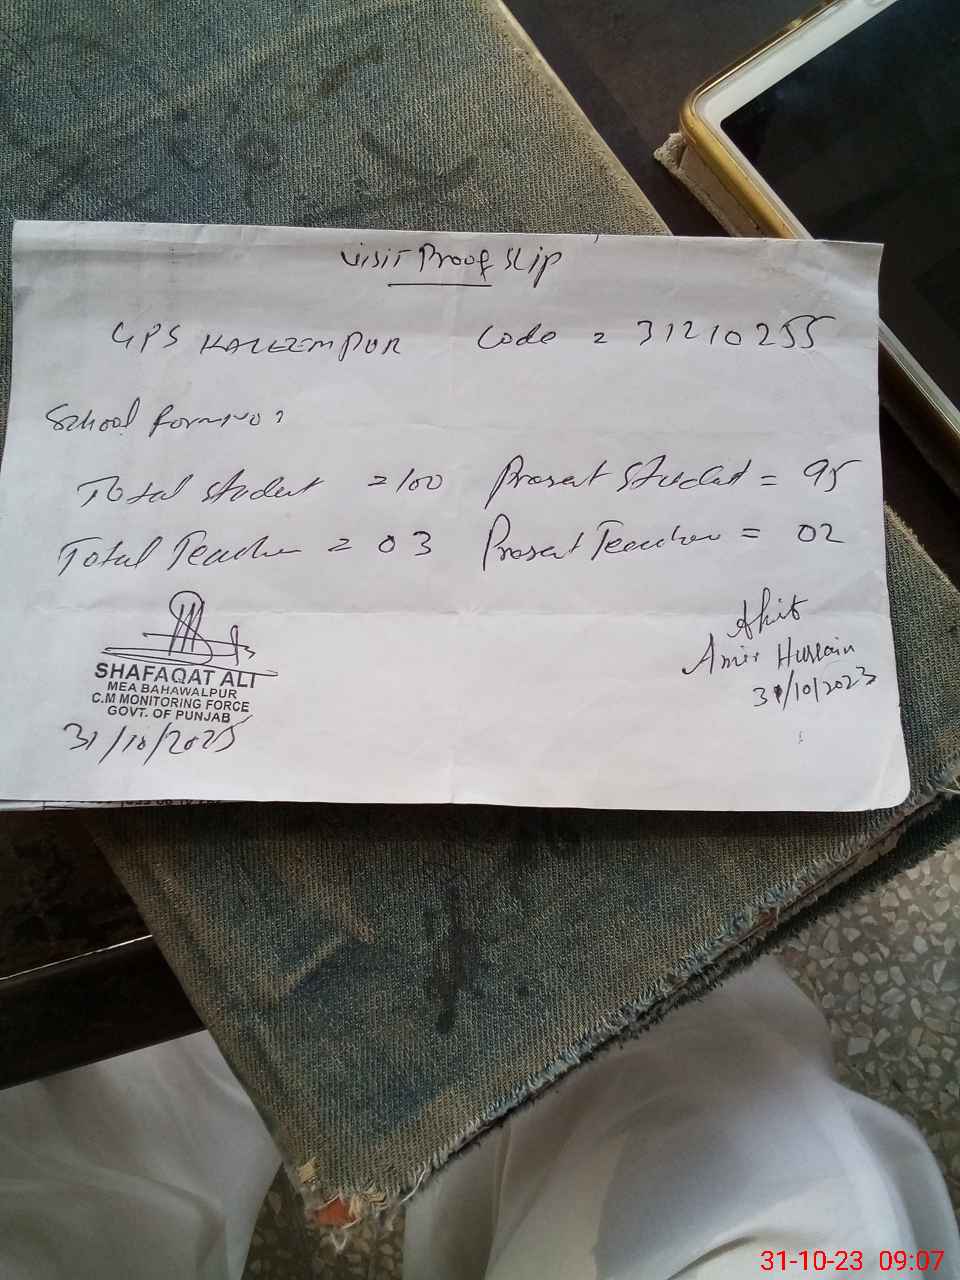 Visit Proof Slip
GPS KALEEMPUR Code = 31210255
School
Total Student = 100 Present Student = 95
Total Teacher = 03 Present Teacher = 02
SHAFAQAT ALI
MEA BAHAWALPUR
C.M MONITORING FORCE
GOVT. OF PUNJAB
31/10/2023
Amir Hussain
31/10/2023
31-10-23 09:07